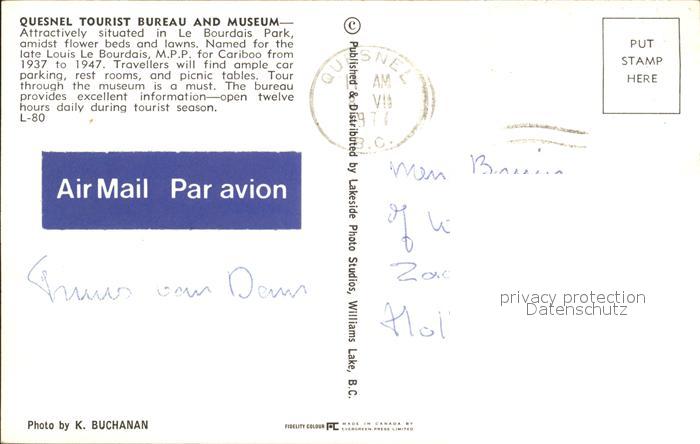 QUESNEL TOURIST BUREAU AND MUSEUM—
Attractively situated in Le Bourdais Park,
amidst flower beds and lawns. Named for the
late Louis Le Bourdais, M.P.P. for Cariboo from
1937 to 1947. Travellers will find ample car
parking, rest rooms, and picnic tables. Tour
through the museum is a must. The bureau
provides excellent information—open twelve
hours daily during tourist season.
L-80
Air Mail Par avion
van
Photo by K. BUCHANAN
© Published & Distributed by Lakeside Photo Studios, Williams Lake, B.C.
QUESNEL
AM
VII
B.C.
PUT
STAMP
HERE
privacy protection
Datenschutz
FIDELITY COLOUR
MADE IN CANADA BY
EVERGREEN PRESS LIMITED